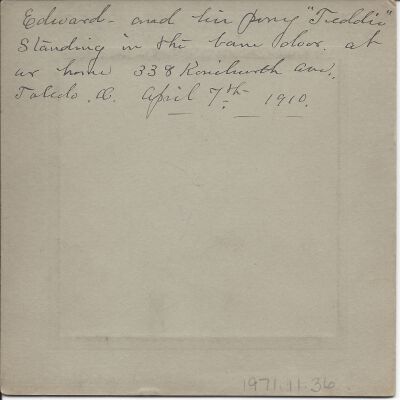 Edward - and his pony "Teddie"
Standing in the barn door. at
our home 338 Kenilworth Ave.,
Toledo. O. April 7th 1910.
1971.11.36